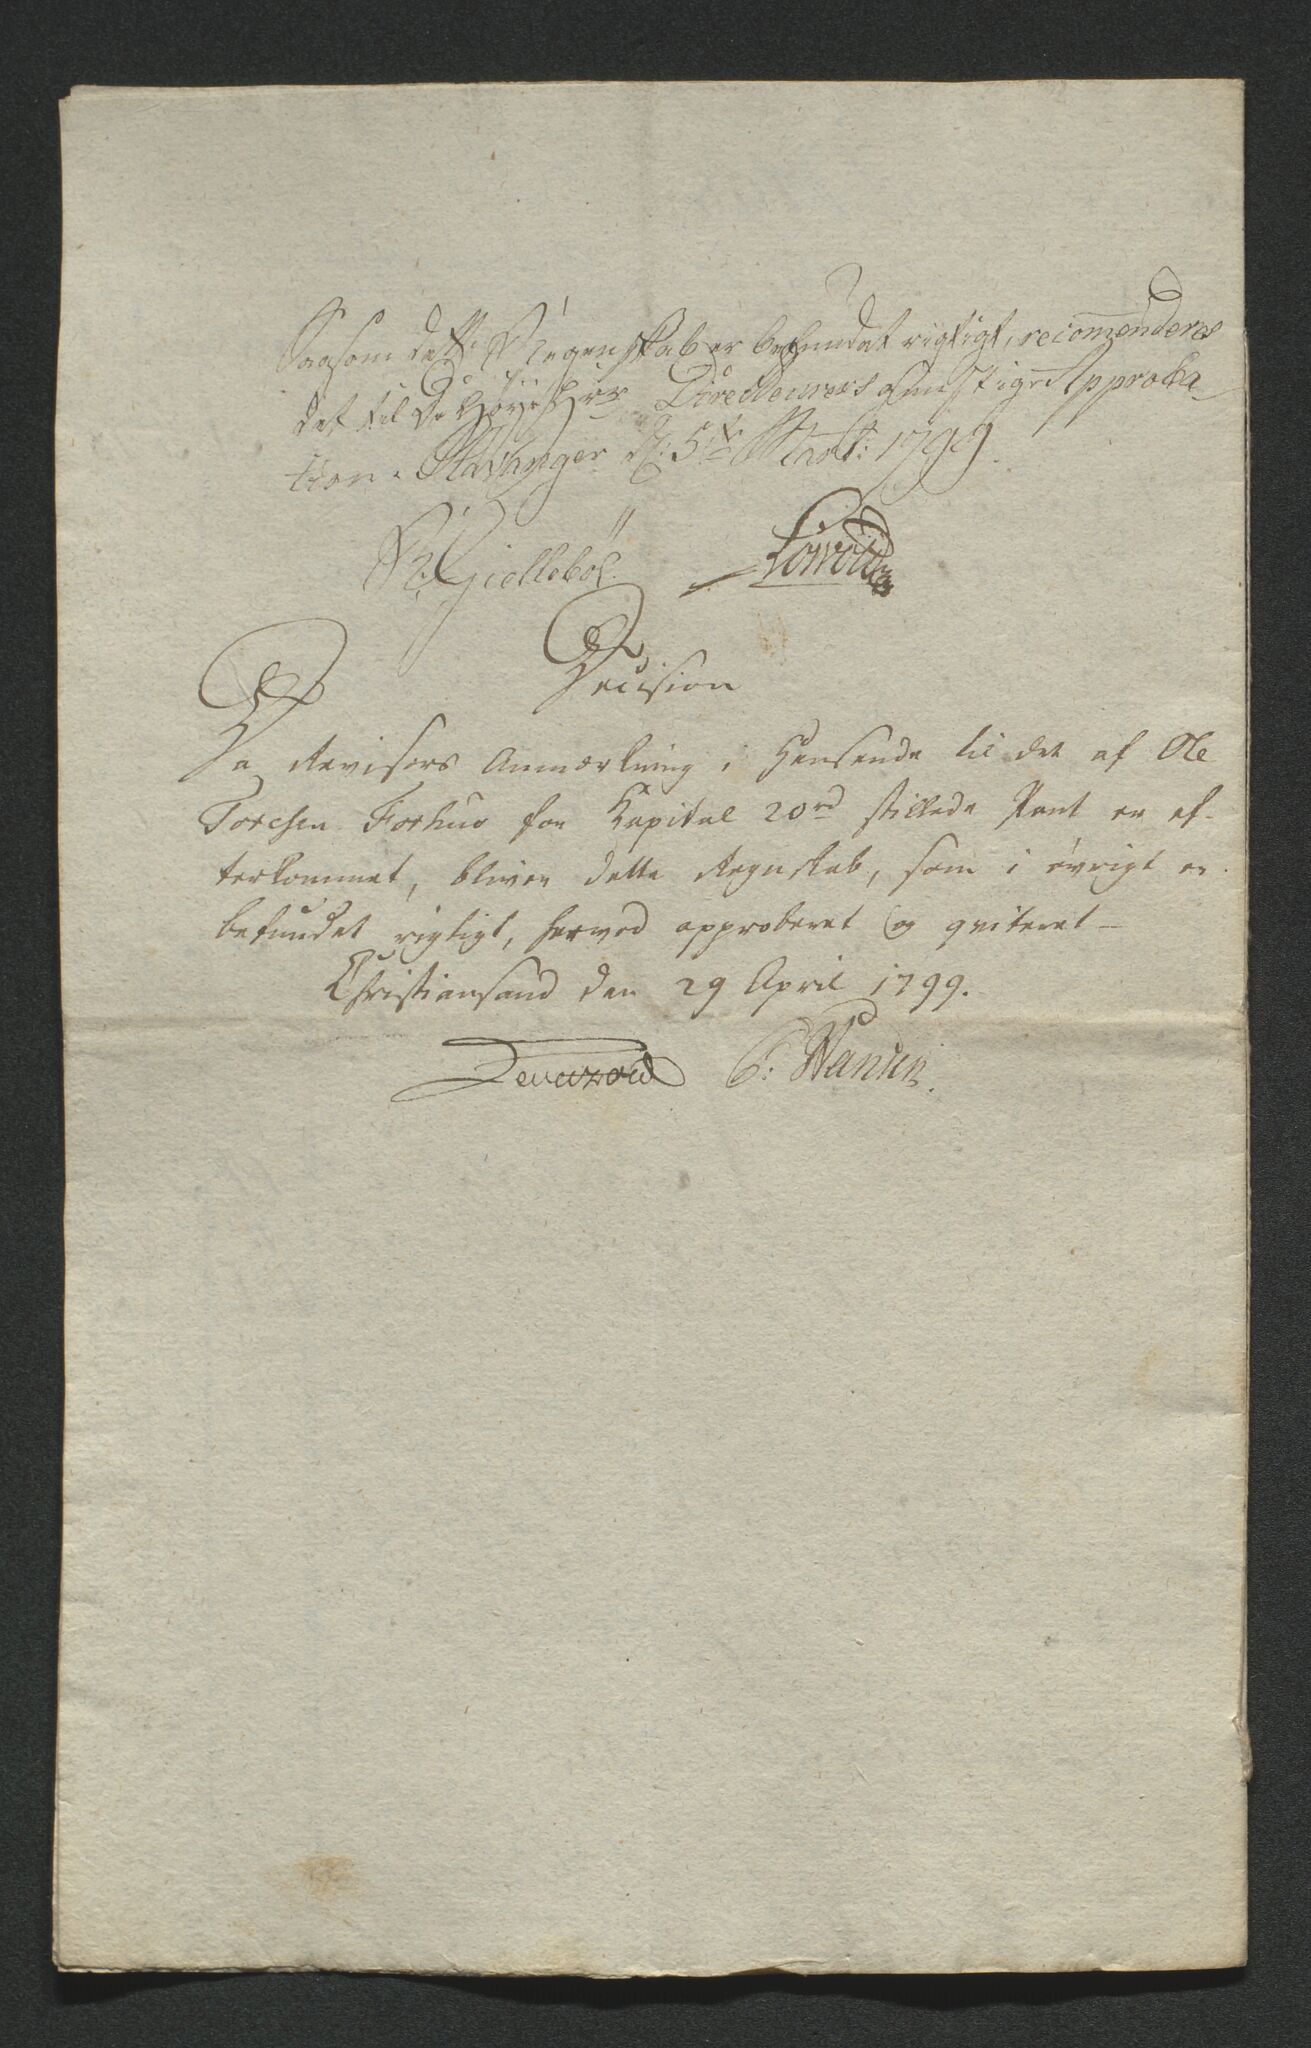 Saasom dette Regenskab er befundet rigtigt, recomenderes
det til De Høye Hrr Directeurers gunstige Approba-
tion. Stavanger d: 5te Mart: 1799.
R. Gjellebøl.
Decision
Da Revisors Anmærkning i Henseende til det af Ole
Torchsen Forhuo for Kapital 20 rd stillede Pant er ef-
terkommet, bliver dette Regnskab, som i øvrigt er
befundet rigtigt, herved approberet og qviteret -
Christiansand den 29 April 1799.
Levetzow P: Hansen.